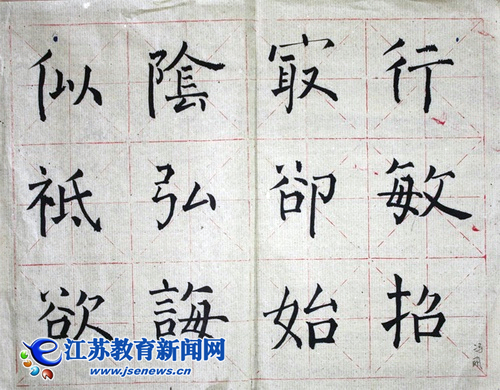 行敏招
㝡卻始
陰弘誨
似祗欲
冯
江苏教育新闻网
www.jsenews.cn